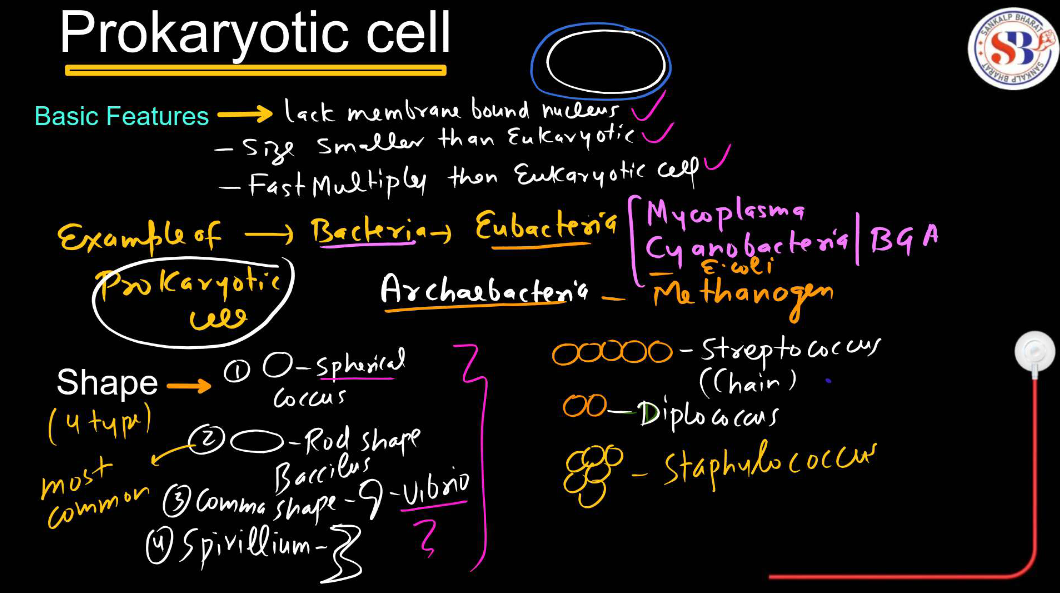 Prokaryotic cell
SANKALP BHARAT
SB
SANKALP BHARAT
Basic Features → lack membrane bound nucleus ✓
– Size smaller than Eukaryotic ✓
– Fast Multiply then Eukaryotic cell ✓
Example of → Bacteria → Eubacteria
Prokaryotic
cell
Mycoplasma
Cyanobacteria | BGA
– E.coli
Archaebacteria – Methanogen
Shape →
(4 type)
① – Spherical
coccus
② – Rod shape
Baccilus
most
common
③ Comma – 9 – Vibrio
shape
④ Spirillium –
– Streptococcus
(Chain)
– Diplococcus
– Staphylococcus